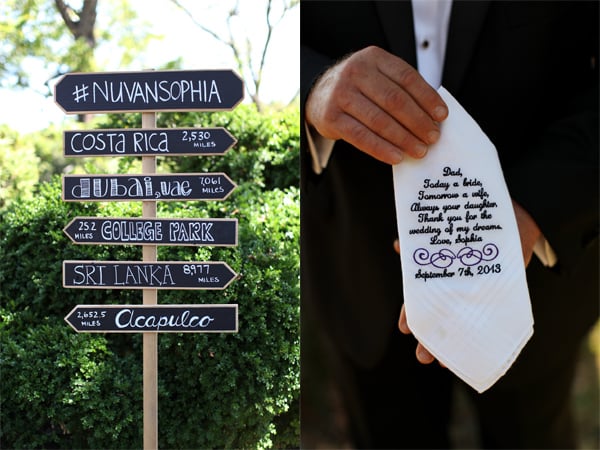 #NUVANSOPHIA
COSTA RICA 2,530 MILES
dubai, uae 7,061 MILES
252 MILES COLLEGE PARK
SRI LANKA 8,977 MILES
2,652.5 MILES Acapulco
Dad,
Today a bride,
Tomorrow a wife,
Always your daughter.
Thank you for the
wedding of my dreams.
Love, Sophia
September 7th, 2013